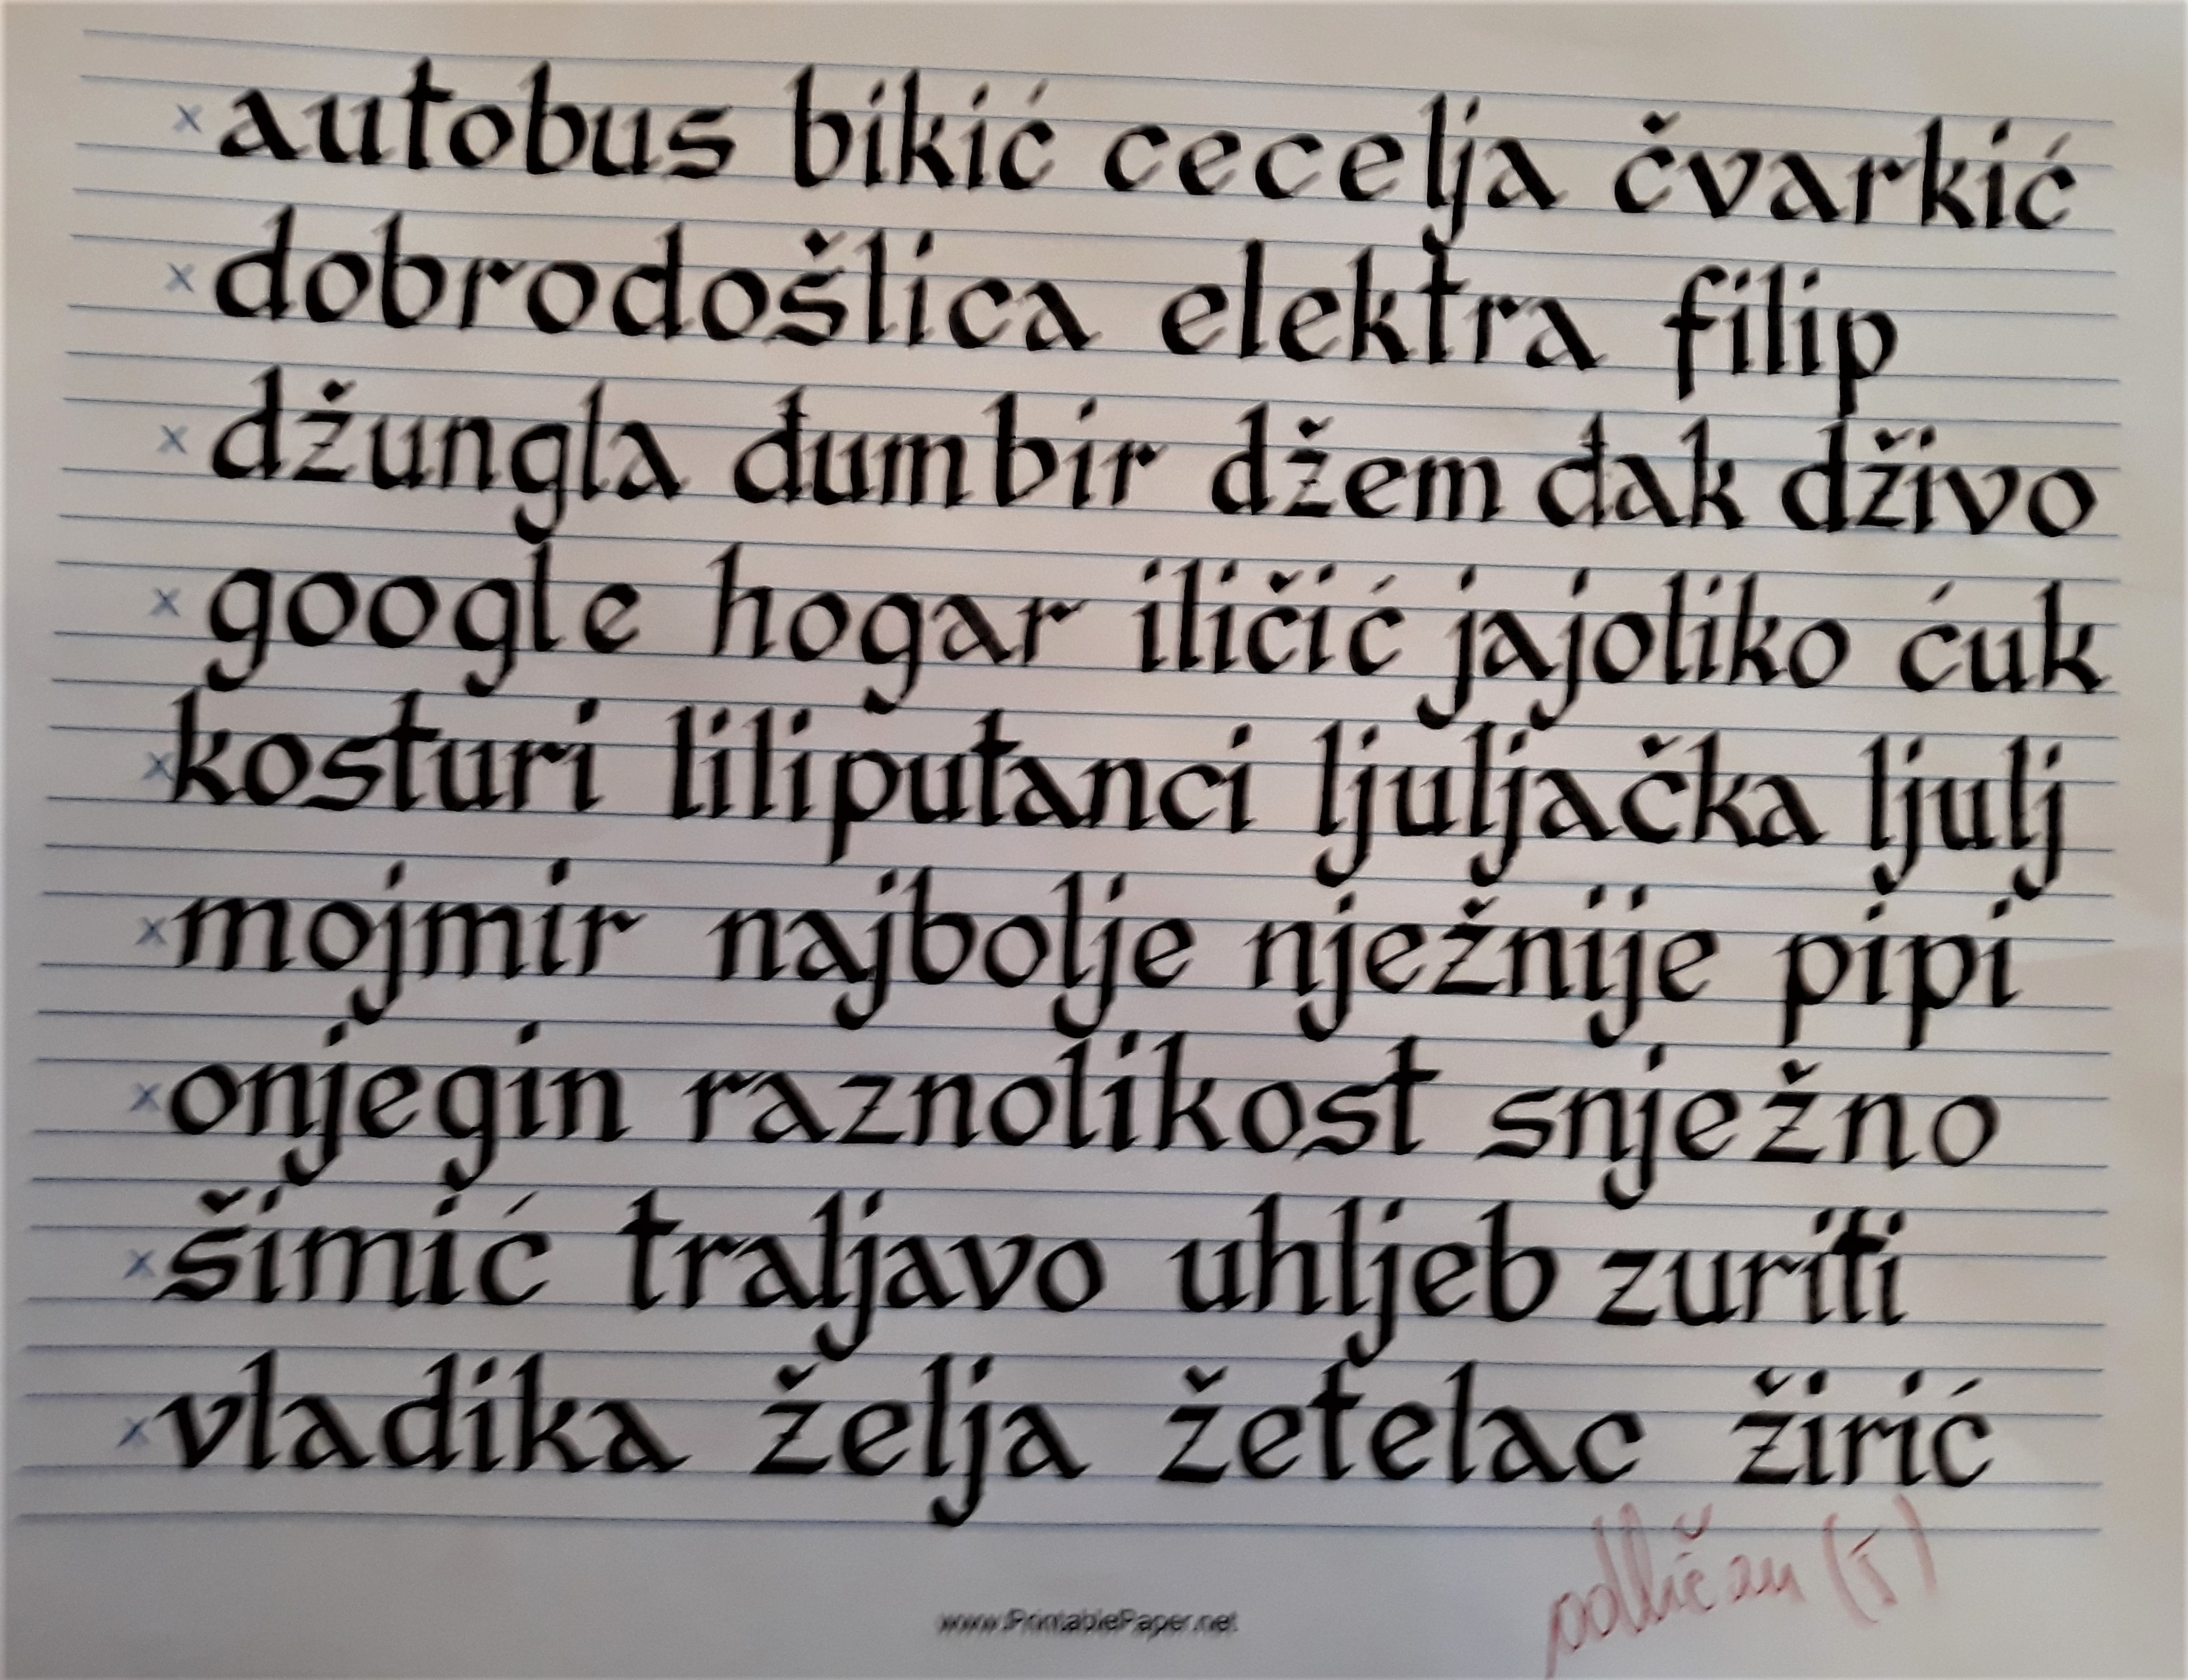 autobus bikić cecelja čvarkić
dobrodošlica elektra filip
džungla đumbir džem đak dživo
google hogar iličić jajoliko ćuk
kosturi liliputanci ljuljačka ljulj
mojmir najbolje nježnije pipi
onjegin raznolikost snježno
šimić traljavo uhljeb zuriti
vladika želja žetelac žirić
odličan (5)
www.PrintablePaper.net